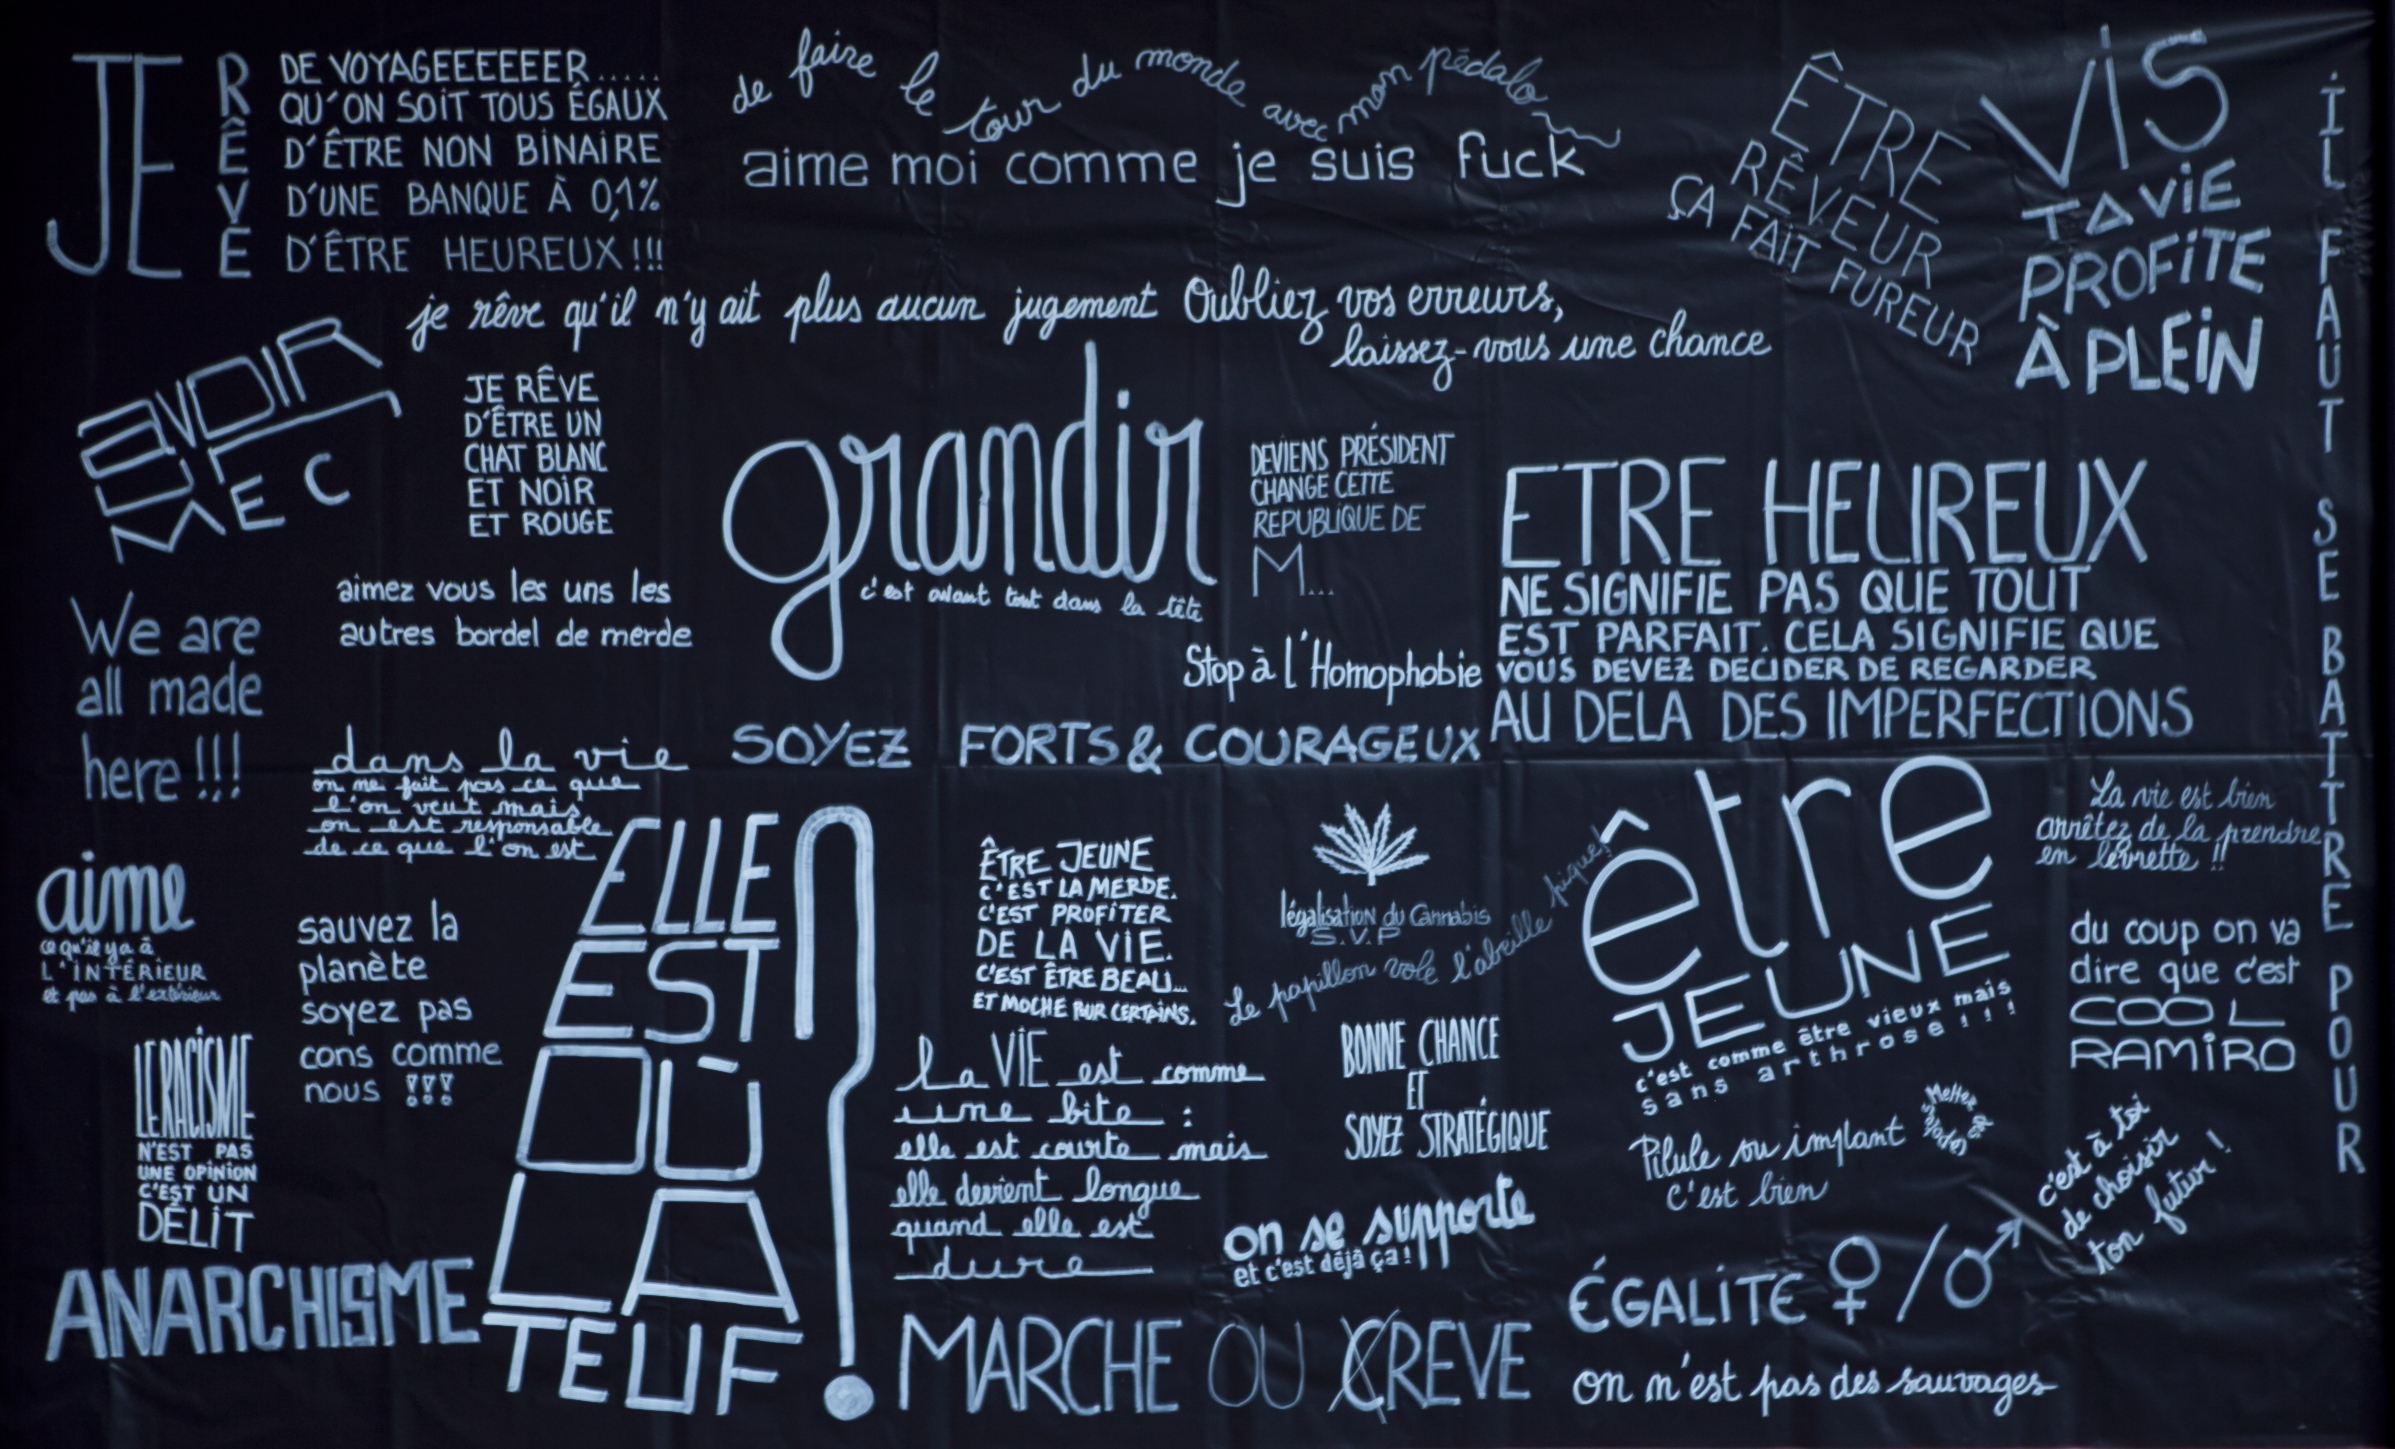 JE
RÊVE
DE VOYAGEEEEEER.....
QU'ON SOIT TOUS ÉGAUX
D'ÊTRE NON BINAIRE
D'UNE BANQUE À 0,1%
D'ÊTRE HEUREUX !!!
de faire le tour du monde avec mon pédalo
aime moi comme je suis fuck
ÊTRE
RÊVEUR
ÇA FAIT FUREUR
VIS
TA VIE
PROFITE
À PLEIN
IL FAUT SE BATTRE POUR
je rêve qu'il n'y ait plus aucun jugement
Oubliez vos erreurs,
laissez-vous une chance
AVOIR
UN
MEC
JE RÊVE
D'ÊTRE UN
CHAT BLANC
ET NOIR
ET ROUGE
grandir
c'est avant tout dans la tête
DEVIENS PRÉSIDENT
CHANGE CETTE
REPUBLIQUE DE
M...
ETRE HEUREUX
NE SIGNIFIE PAS QUE TOUT
EST PARFAIT. CELA SIGNIFIE QUE
VOUS DEVEZ DECIDER DE REGARDER
AU DELA DES IMPERFECTIONS
We are
all made
here !!!
aimez vous les uns les
autres bordel de merde
Stop à l'Homophobie
SOYEZ FORTS & COURAGEUX
dans la vie
on ne fait pas ce que
l'on veut mais
on est responsable
de ce que l'on est
aime
ce qu'il y a à
L'INTÉRIEUR
et pas à l'extérieur
sauvez la
planète
soyez pas
cons comme
nous !!!
ELLE
EST
OÙ
LA
TEUF
?
ÊTRE JEUNE
C'EST LA MERDE.
C'EST PROFITER
DE LA VIE.
C'EST ÊTRE BEAU...
ET MOCHE POUR CERTAINS.
légalisation du Cannabis
S.V.P
Le papillon vole l'abeille pique!
être
JEUNE
c'est comme être vieux mais
sans arthrose !!!
La vie est bien
arrêtez de la prendre
en levrette !!
du coup on va
dire que c'est
COOL
RAMIRO
LE RACISME
N'EST PAS
UNE OPINION
C'EST UN
DÉLIT
La VIE est comme
une bite :
elle est courte mais
elle devient longue
quand elle est
dure
BONNE CHANCE
ET
SOYEZ STRATÉGIQUE
Pilule ou implant
c'est bien
Mettez des capotes
c'est à toi
de choisir
ton futur !
on se supporte
et c'est déjà ça !
ANARCHISME
MARCHE OU CREVE
ÉGALITÉ ♀/♂
on n'est pas des sauvages